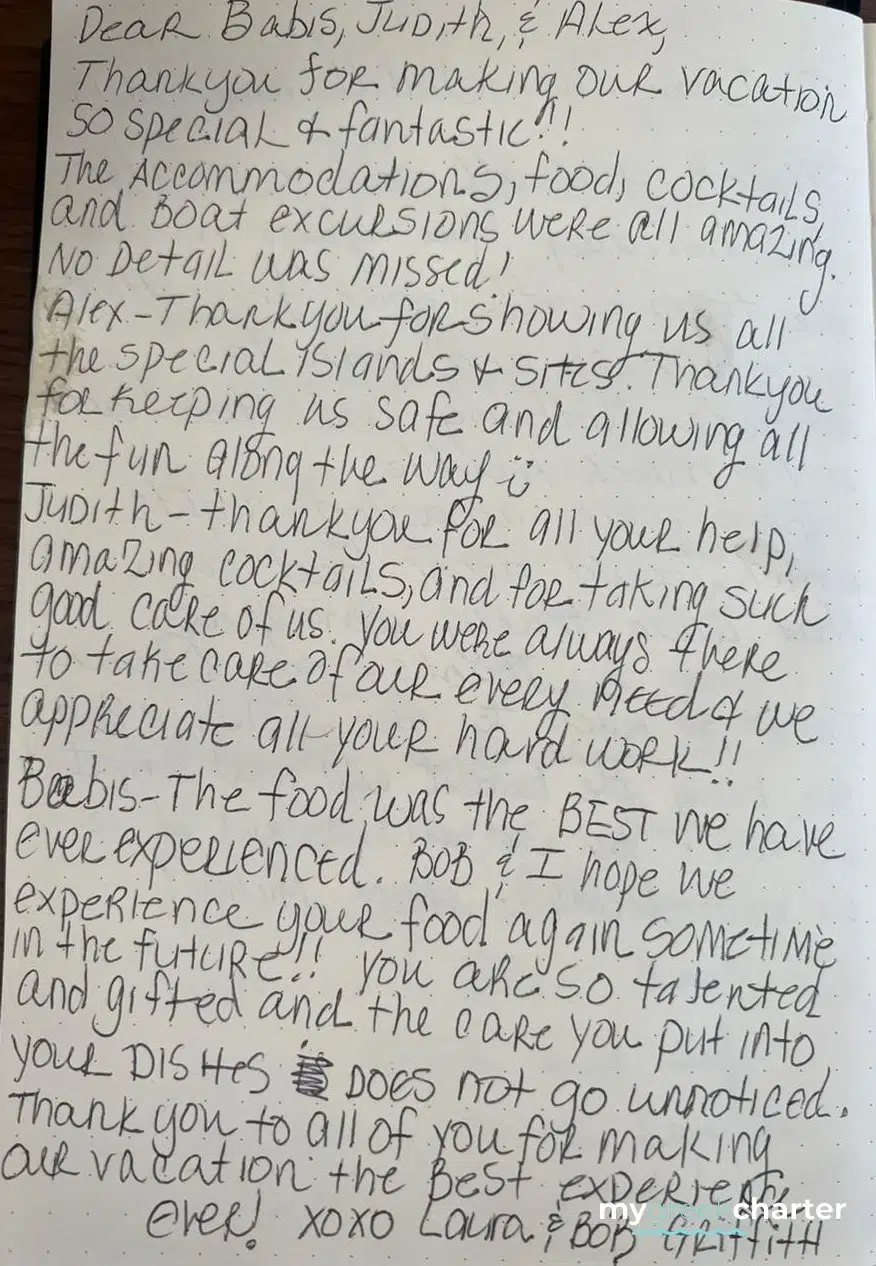 Dear Babis, Judith, & Alex,
Thankyou for making our vacation
so special & fantastic!!!
The Accommodations, food, cocktails,
and boat excursions were all amazing.
No Detail was missed!
Alex - Thankyou for showing us all
the special islands & sites. Thankyou
for keeping us safe and allowing all
the fun along the way
Judith - thankyou for all your help,
amazing cocktails, and for taking such
good care of us. You were always there
to take care of our every need & we
appreciate all your hard work!!
Babis - The food was the BEST we have
ever experienced. Bob & I hope we
experience your food again sometime
in the future!! You are so talented
and gifted and the care you put into
your Dishes Does not go unnoticed.
Thank you to all of you for making
our vacation the Best experience
ever! xoxo Laura & Bob Griffith
mygreekcharter